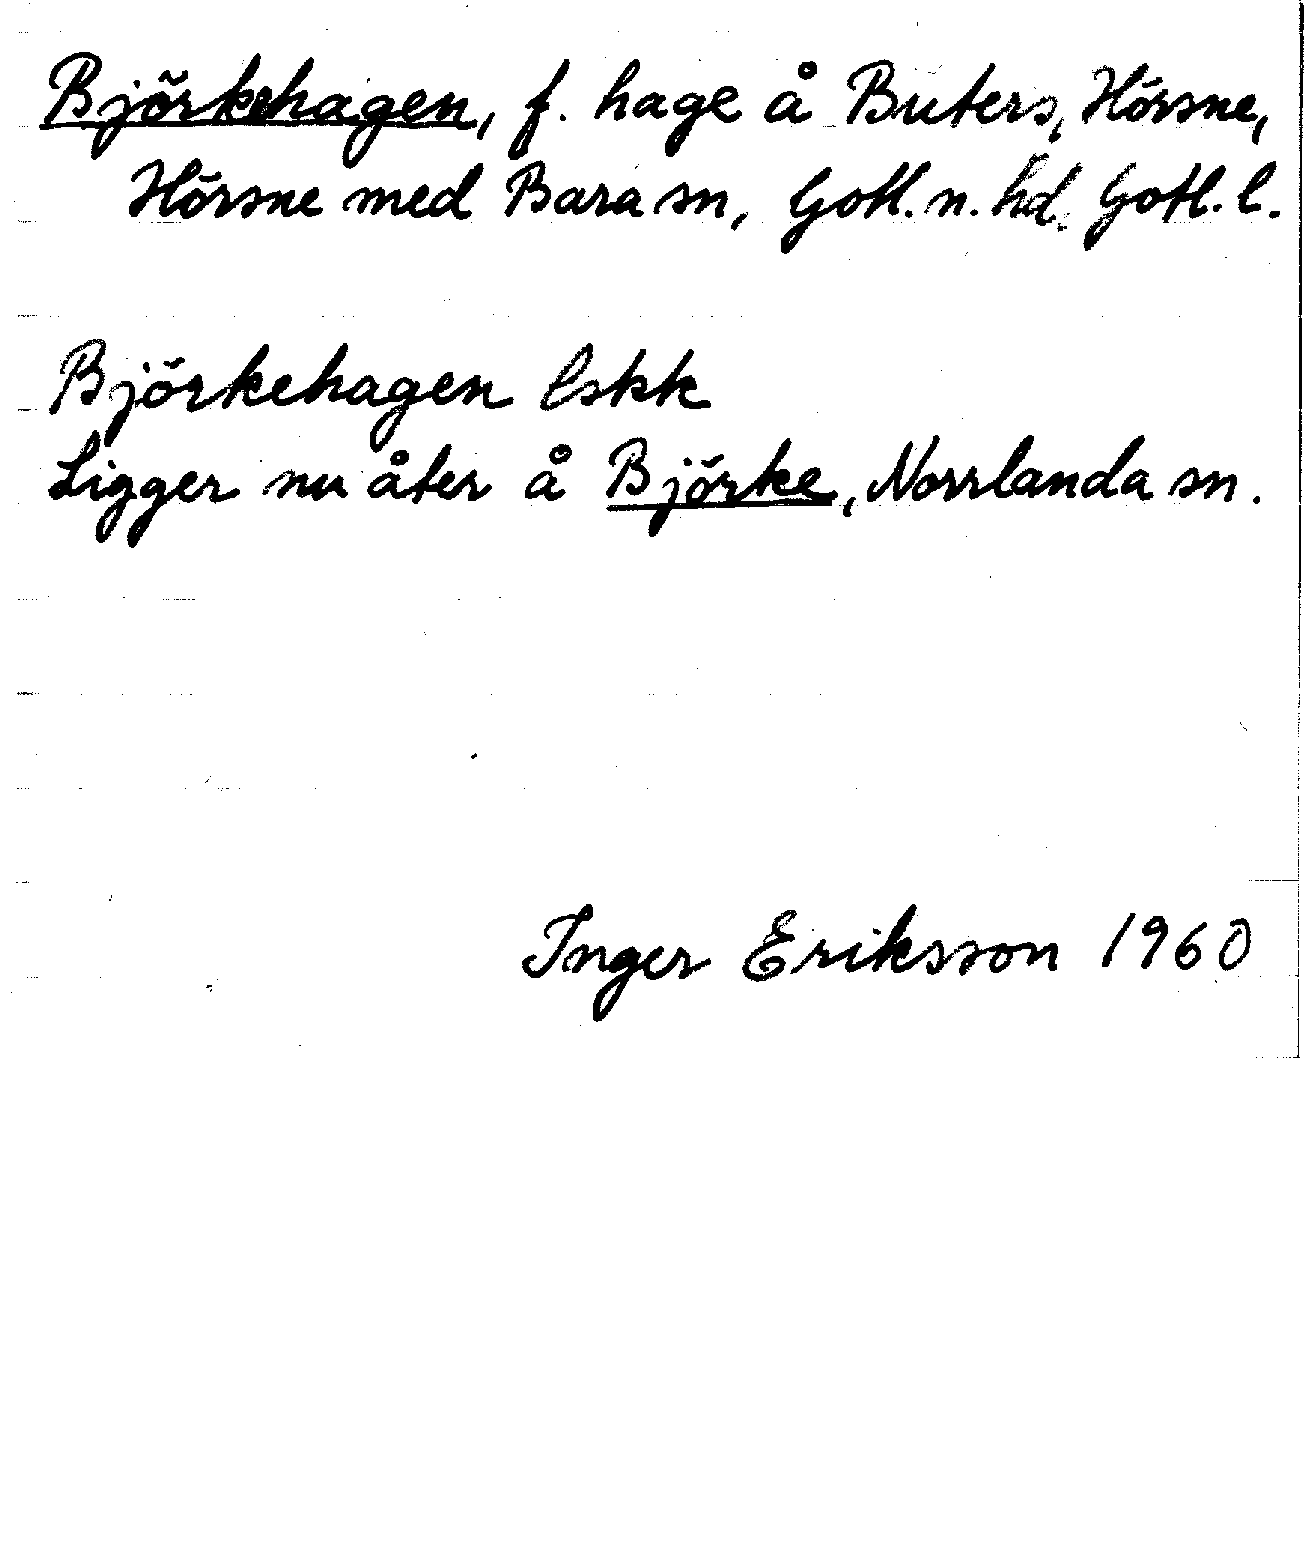 Björkehagen, f. hage å Buters, Hörsne,
Hörsne med Bara sn, Gotl. n. hd. Gotl. l.
Björkehagen lskk
Ligger nu åter å Björke, Norrlanda sn.
Inger Eriksson 1960